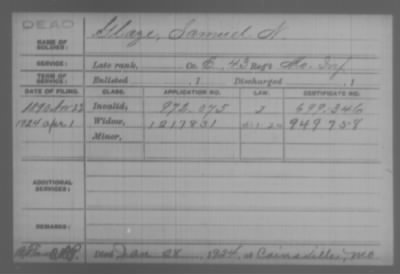 DEAD
NAME OF SOLDIER: Glaze, Samuel N.
SERVICE: Late rank, Co. E, 43 Reg't Mo. Inf.
TERM OF SERVICE: Enlisted , 1 Discharged , 1
DATE OF FILING. CLASS. APPLICATION NO. LAW. CERTIFICATE NO.
1890 Invalid, 972.075 699.346
1924 Apr 1 Widow, 1217831 949758
Minor,
ADDITIONAL SERVICES:
REMARKS:
Died Jan 28, 1924, at Cainsville, Mo